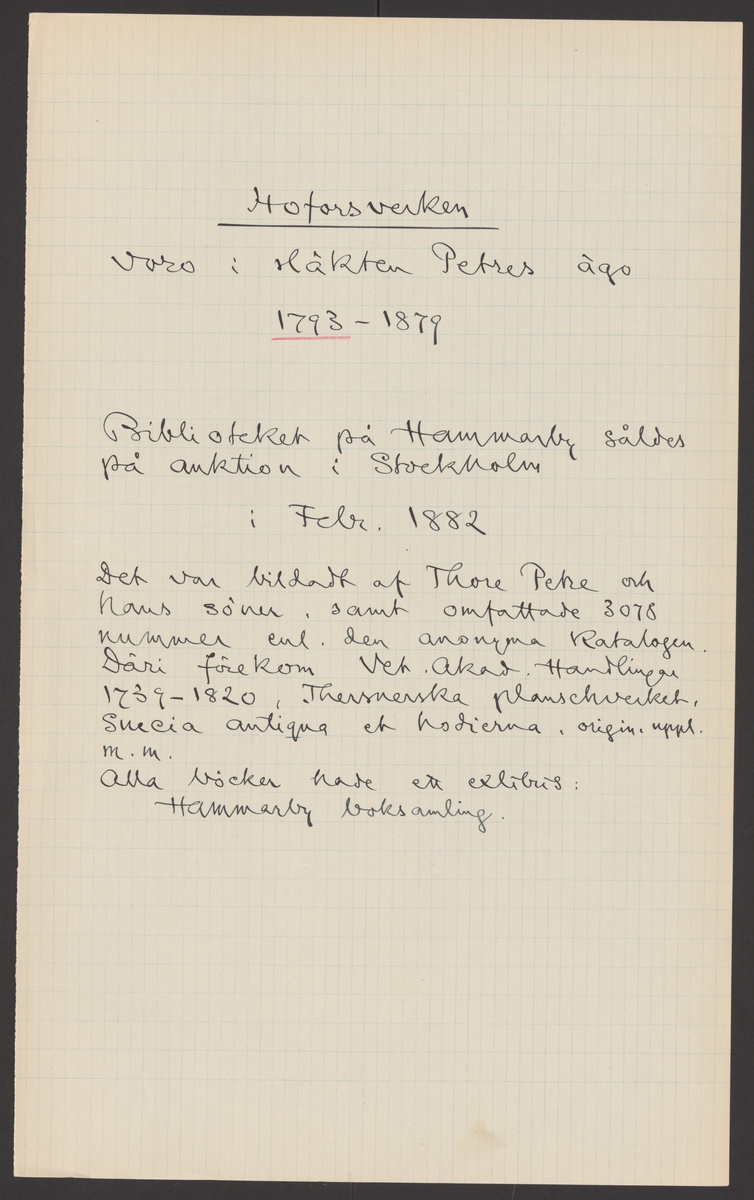 Hoforsverken
voro i släkten Petres ägo
1793 – 1879
Biblioteket på Hammarby såldes
på auktion i Stockholm
i Febr. 1882
Det var bildadt af Thore Petre och
hans söner, samt omfattade 3078
nummer enl. den anonyma katalogen.
Däri förekom Vet. Akad. Handlingar
1739–1820, Thersnerska planschverket,
Suecia antiqua et hodierna, origin. uppl.
m. m.
Alla böcker hade ett exlibris:
Hammarby boksamling.